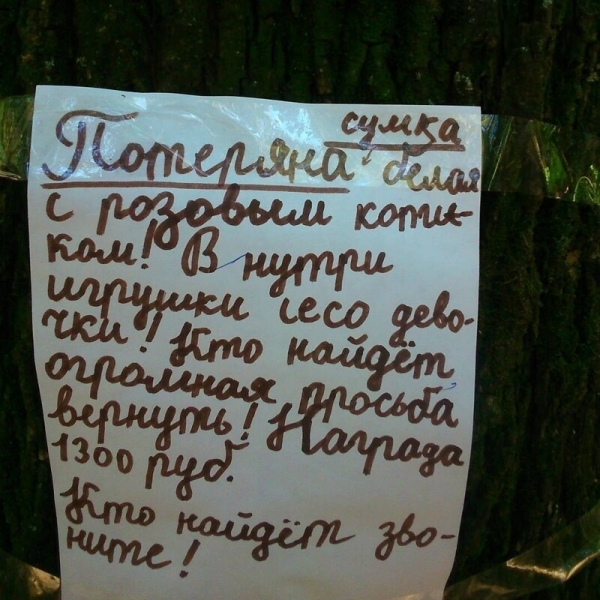 сумка
Потеряна белая
с розовым коти-
ком! В нутри
игрушки сесо дево-
чки! Кто найдёт,
огромная просьба
вернуть! Награда
1300 руб.
Кто найдёт зво-
ните!